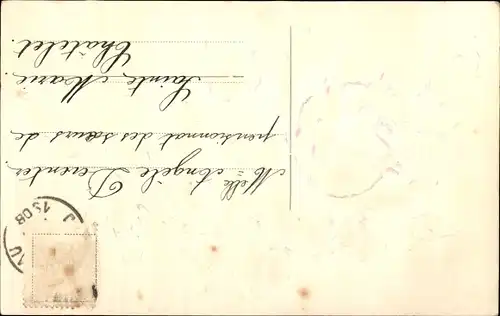 Melle Angèle Deventer
pensionnat des sœurs de
Sainte Marie
Châtelet.